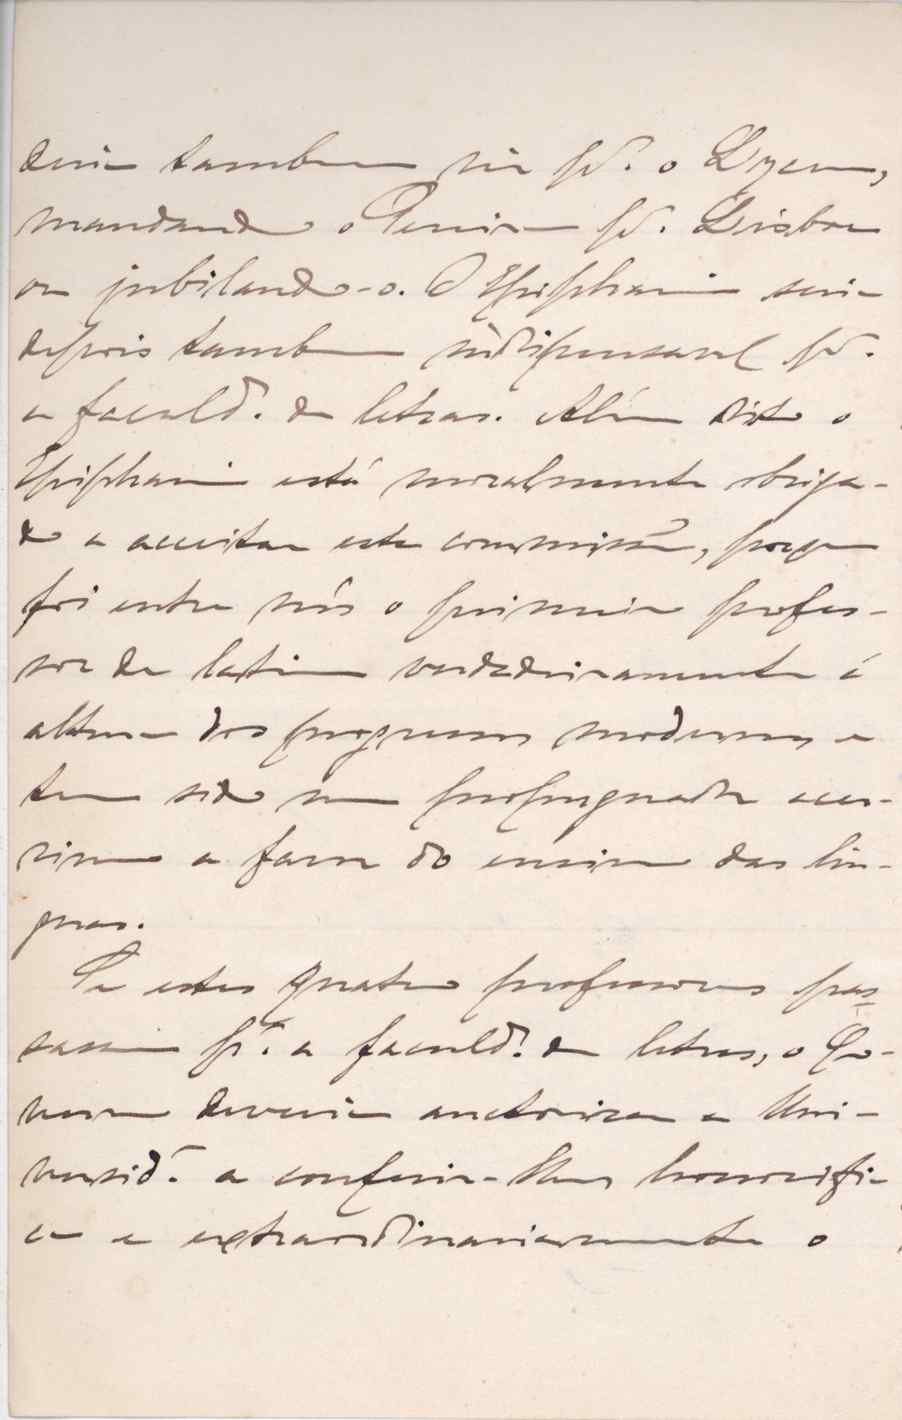 deria tambem vir pª. o Lyceu,
mandando o Pereira pª. Lisboa
ou jubilando-o. O Epiphanio seria
depois tambem indispensavel pª.
a faculdᵉ. de letras. Alem disto o
Epiphanio está moralmente obriga-
do a acceitar esta commissão, porque
foi entre nós o primeiro profes-
sor de latim verdadeiramente á
altura dos progressos modernos e
tem sido um propugnador acer-
rimo a favor do ensino das lin-
guas.
Se estes quatro professores pas-
sassem pª. a faculdᵉ. de letras, o Go-
verno deveria auctorizar a Uni-
versidᵉ. a conferir-lhes honorifi-
ca e extraordinariamente o